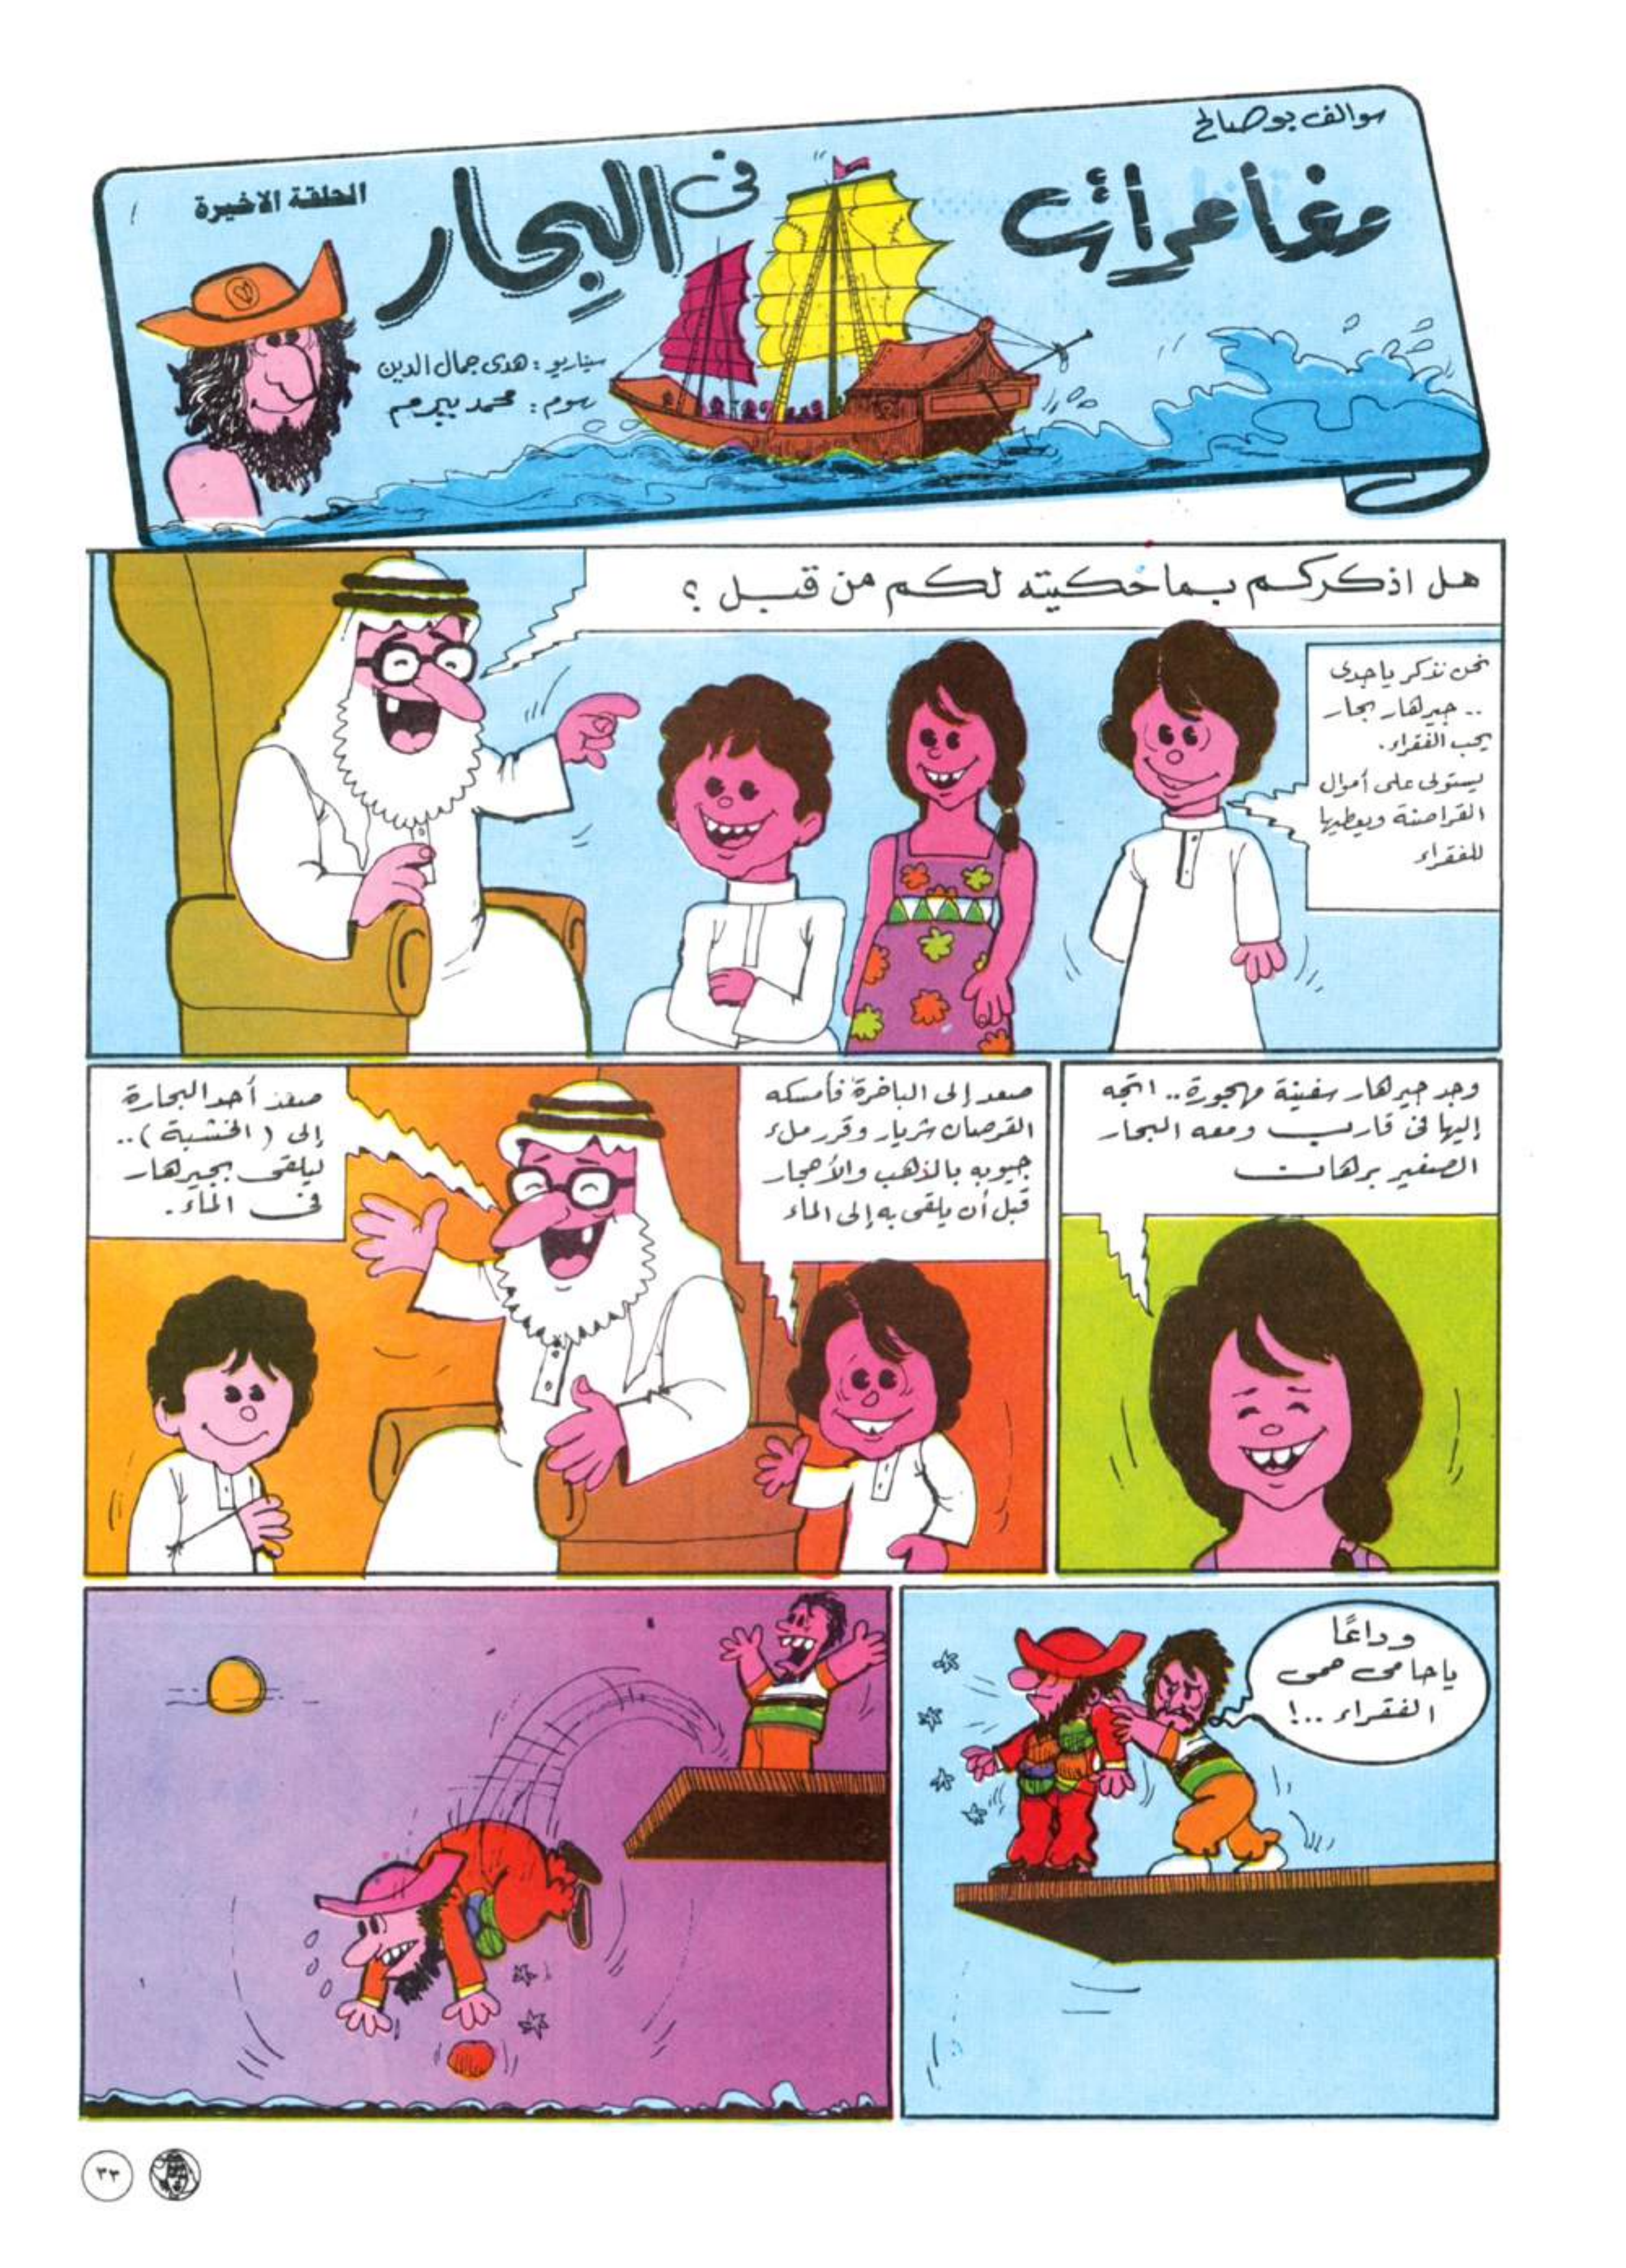 سوالف بوصالح
مغامرات
فى البحار
الحلقة الاخيرة
سيناريو : هدى جمال الدين
رسوم : محمد بيرم
هل اذكركم بما حكيته لكم من قبل ؟
نحن نذكر يا جدى
.. جيرهار بحار
يحب الفقراء .
يستولى على أموال
القراصنة ويعطيها
للفقراء
وجد جيرهار سفينة مهجورة .. اتجه
إليها فى قارب ومعه البحار
الصغير برهان
صعد إلى الباخرة فأمسكه
القرصان شريار وقرر ملء
جيوبه بالذهب والأحجار
قبل أن يلقى به إلى الماء
صعد أحد البحارة
إلى ( الخشبة ) ..
ليلقى بجيرهار
فى الماء .
وداعًا
يا حامى حمى
الفقراء ..!
٣٣